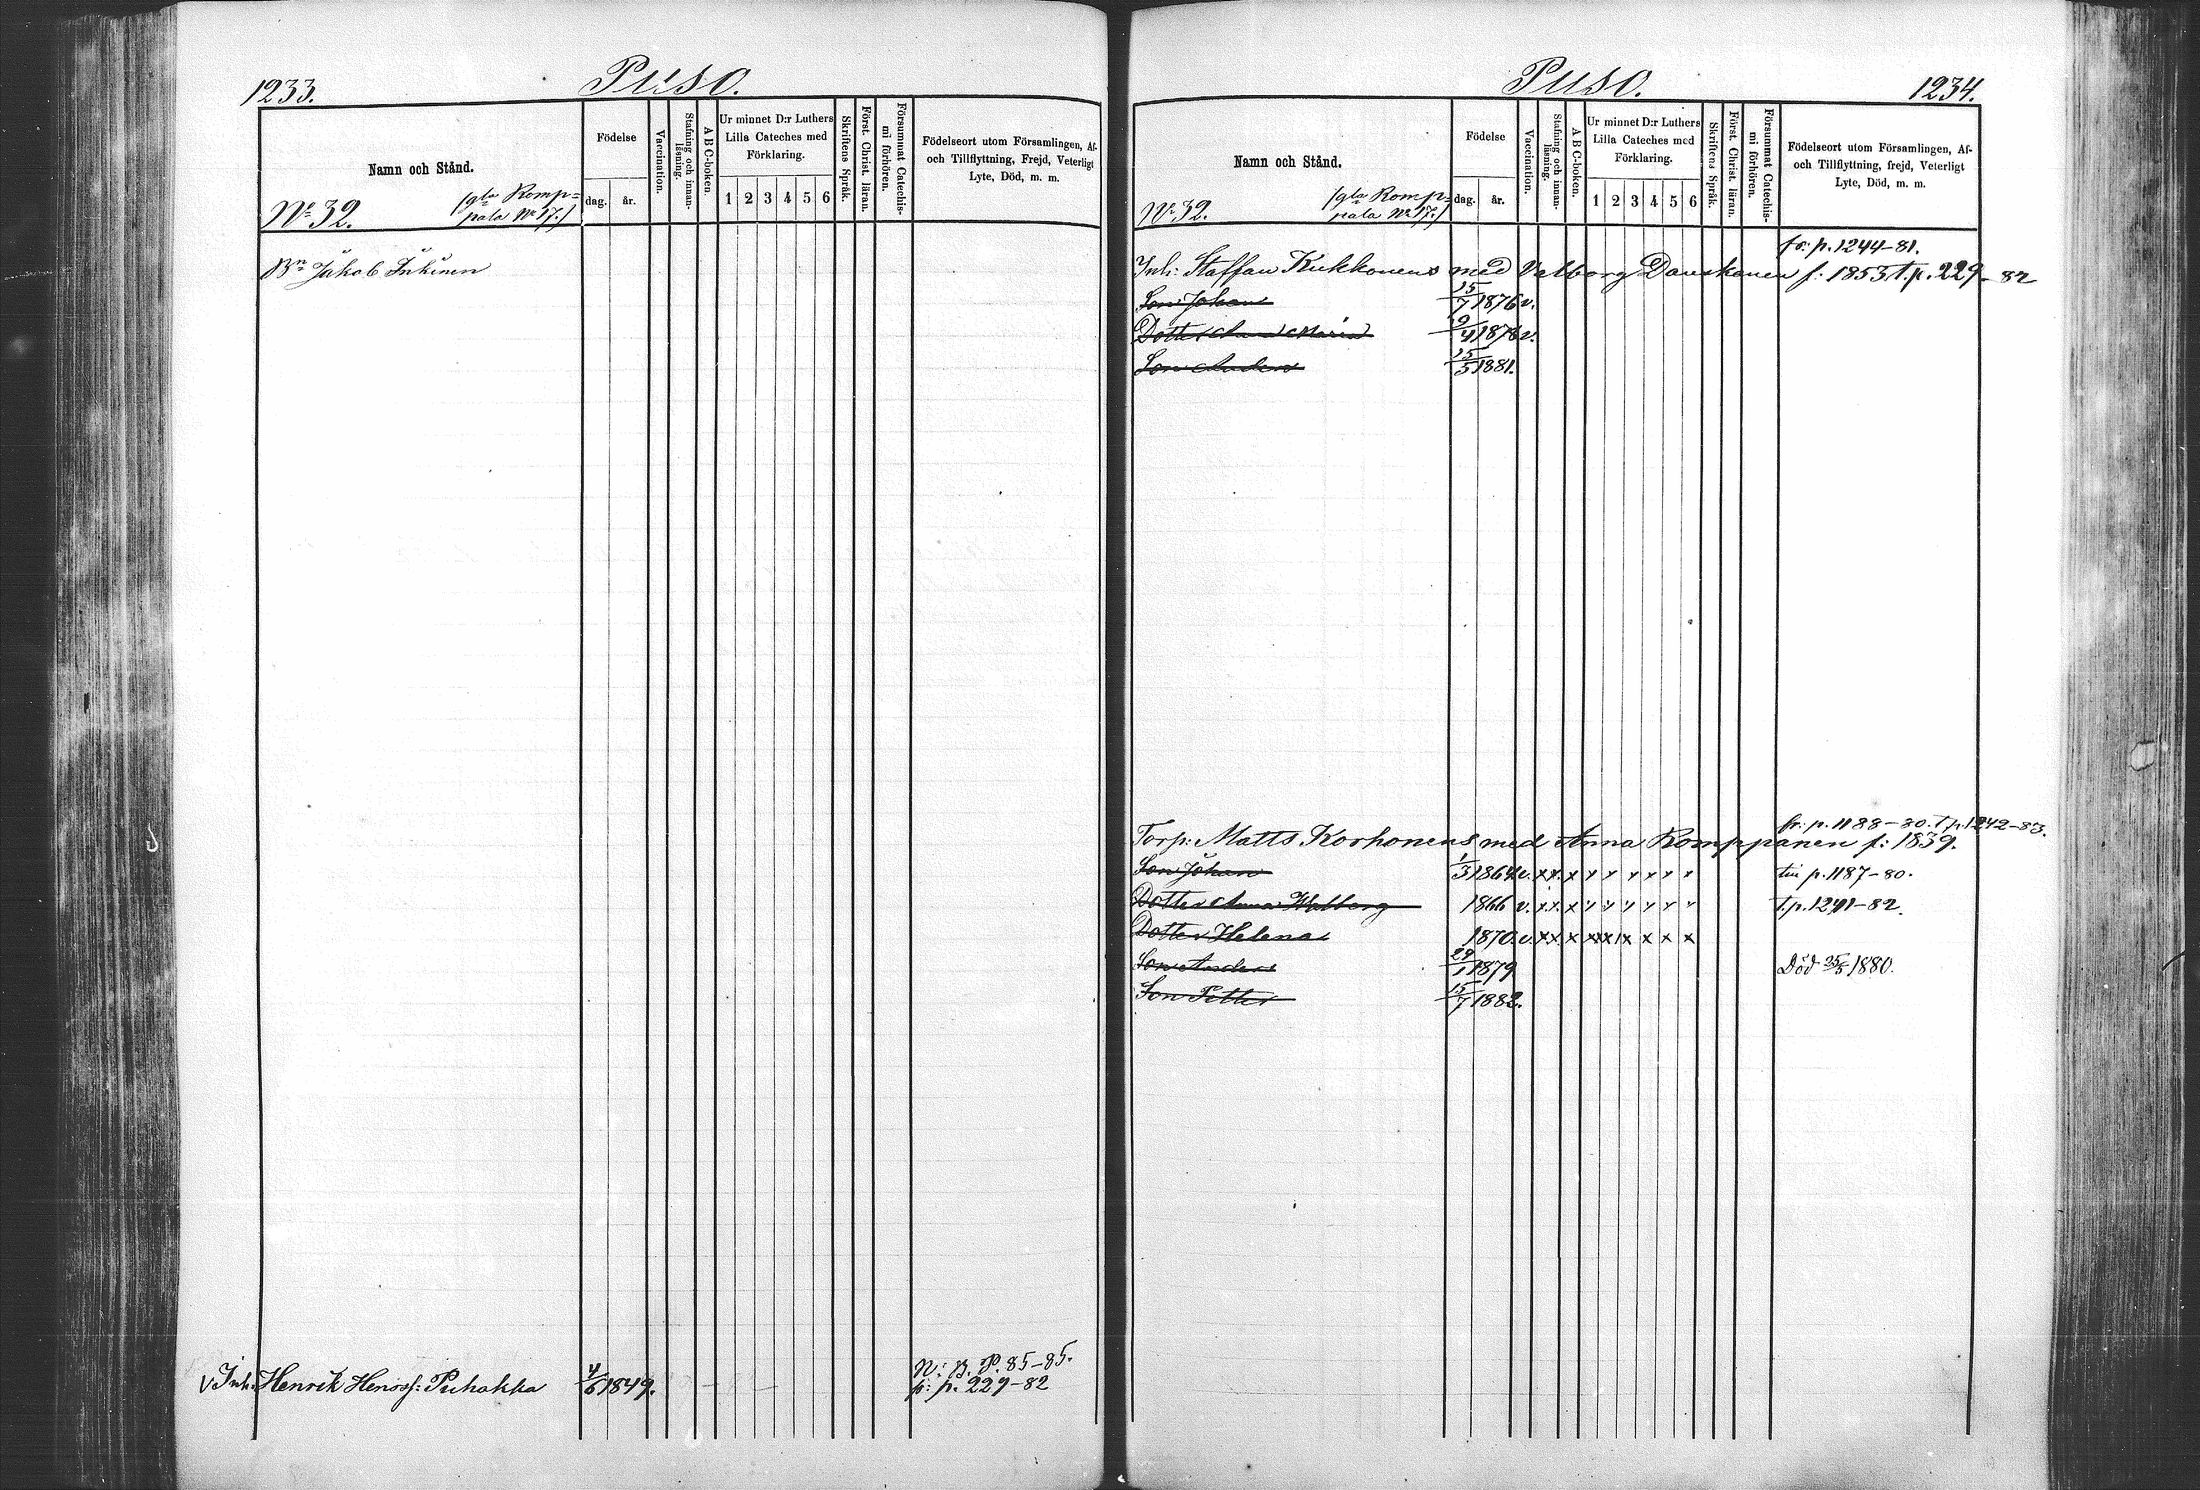 1233.
Puso.
Namn och Stånd.
Födelse
dag.
år.
Vaccination.
Stafning och innan-
läsning.
A B C-boken.
Ur minnet D:r Luthers
Lilla Cateches med
Förklaring.
1 2 3 4 5 6
Skriftens Språk.
Först. Christ. läran.
Försummat Catechis-
mi förhören.
Födelseort utom Församlingen, Af-
och Tillflyttning, Frejd, Veterligt
Lyte, Död, m. m.
No 32.
(gla Romp-
pala No 17.)
Bn Jakob Inkinen
N: B. P. 85-85.
v Inh: Henrik Henrss: Puhakka 4/6 1849. fr: p. 229-82
Puso.
1234.
Namn och Stånd.
Födelse
dag.
år.
Vaccination.
Stafning och innan-
läsning.
A B C-boken.
Ur minnet D:r Luthers
Lilla Cateches med
Förklaring.
1 2 3 4 5 6
Skriftens Språk.
Först. Christ. läran.
Försummat Catechis-
mi förhören.
Födelseort utom Församlingen, Af-
och Tillflyttning, frejd, Veterligt
Lyte, Död, m. m.
No 32.
(gla Romp-
pala No 17.)
fr: p. 1244-81.
Inh: Staffan Kukkonens med Valborg Danskanen f: 1853 t. p. 229-82
Son Johan 15/7 1876 v.
Dotter Anna Maria 9/4 1878 v.
Son Anders 15/5 1881.
fr: p. 1188-80. t p. 1242-83.
Torp: Matts Korhonens med Anna Romppanen f: 1839.
Son Johan 1/3 1864 v. x x x x x x x x x till p. 1187-80.
Dotter Anna Walborg 1866 v. x x x x x x x x x t. p. 1241-82.
Dotter Helena 1870 v. x x x x x x x x x
Son Anders 29/1 1879 Död 25/5 1880.
Son Petter 15/7 1882.